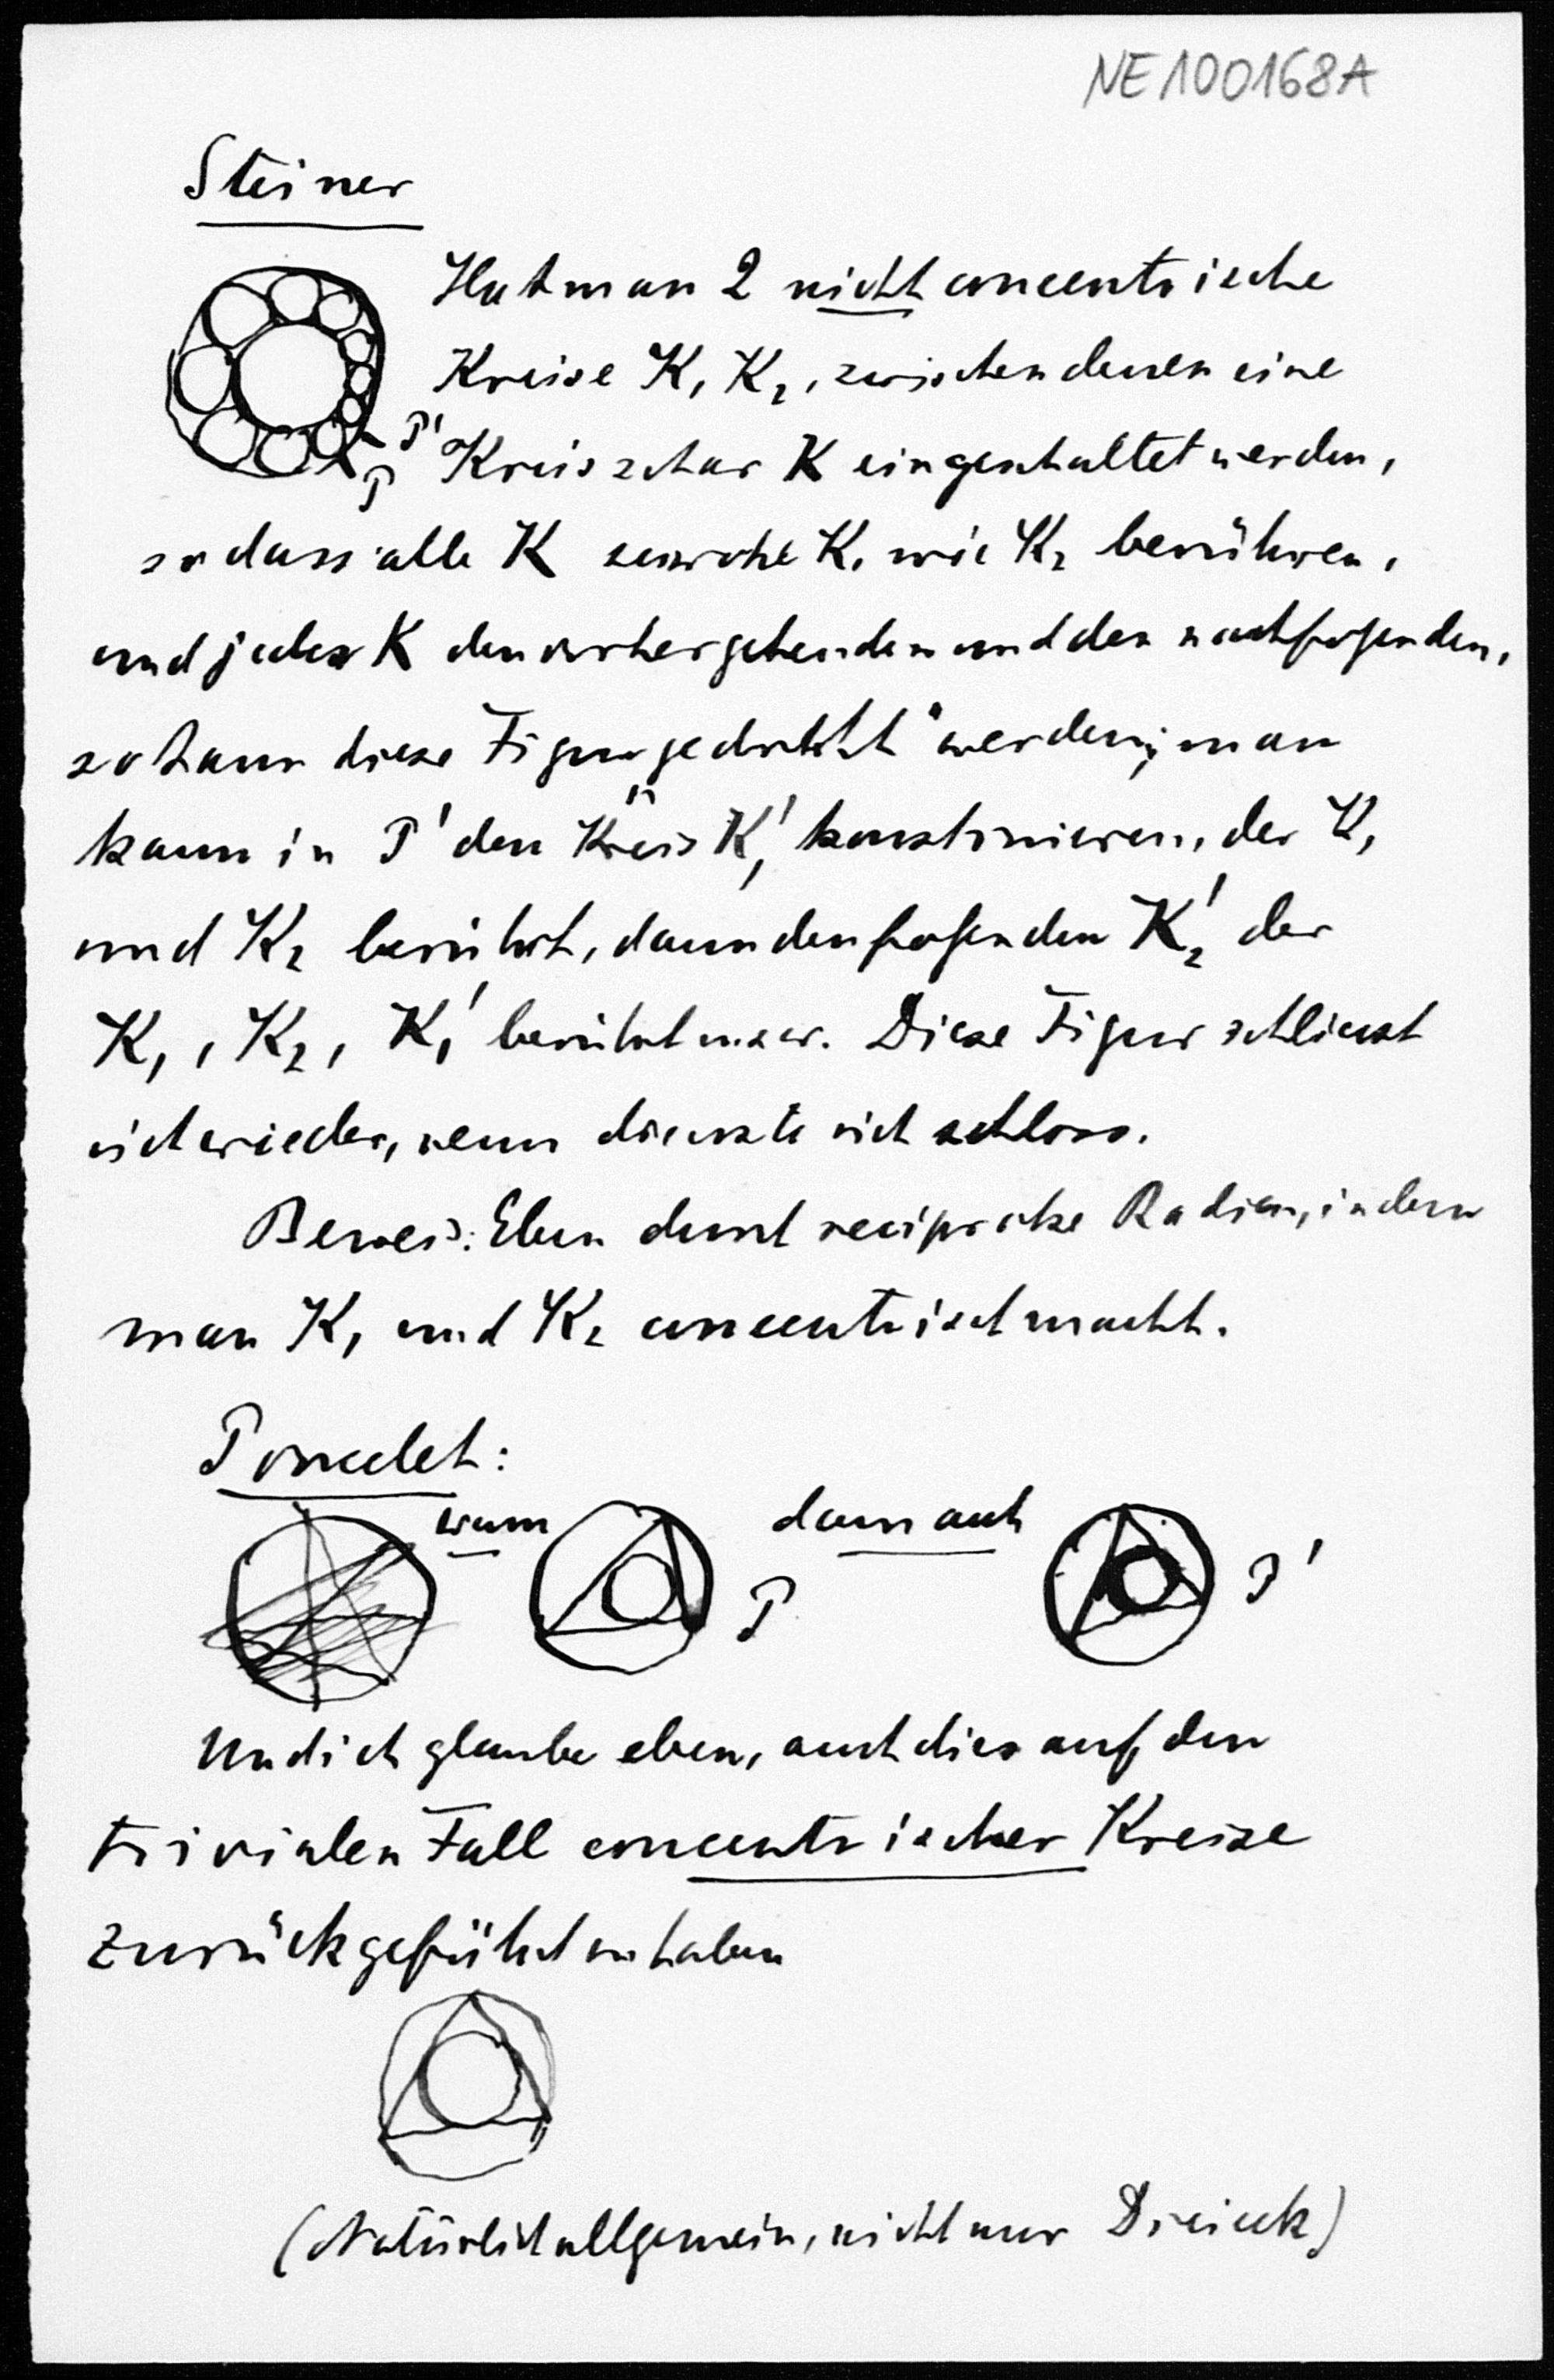 NE100168A
Steiner
Hat man 2 nicht concentrische
Kreise K₁ K₂, zwischen denen eine
P' Kreisschar K eingeschaltet werden,
P
so dass alle K sowohl K₁ wie K₂ berühren,
und jeder K den vorhergehenden und den nachfolgenden,
so kann diese Figur „gedreht" werden; man
kann in P' den Kreis K₁' konstruieren, der K₁
und K₂ berührt, dann den folgenden K₂' der
K₁, K₂, K₁' berührt u.s.w. Diese Figur schliesst
sich wieder, wenn die erste sich schloss.
Beweis: Eben durch reciproke Radien, indem
man K₁ und K₂ concentrisch macht.
Poncelet:
wenn dann auch
P P'
Und ich glaube eben, auch dies auf den
trivialen Fall concentrischer Kreise
zurückgeführt zu haben
(Natürlich allgemein, nicht nur Dreieck)